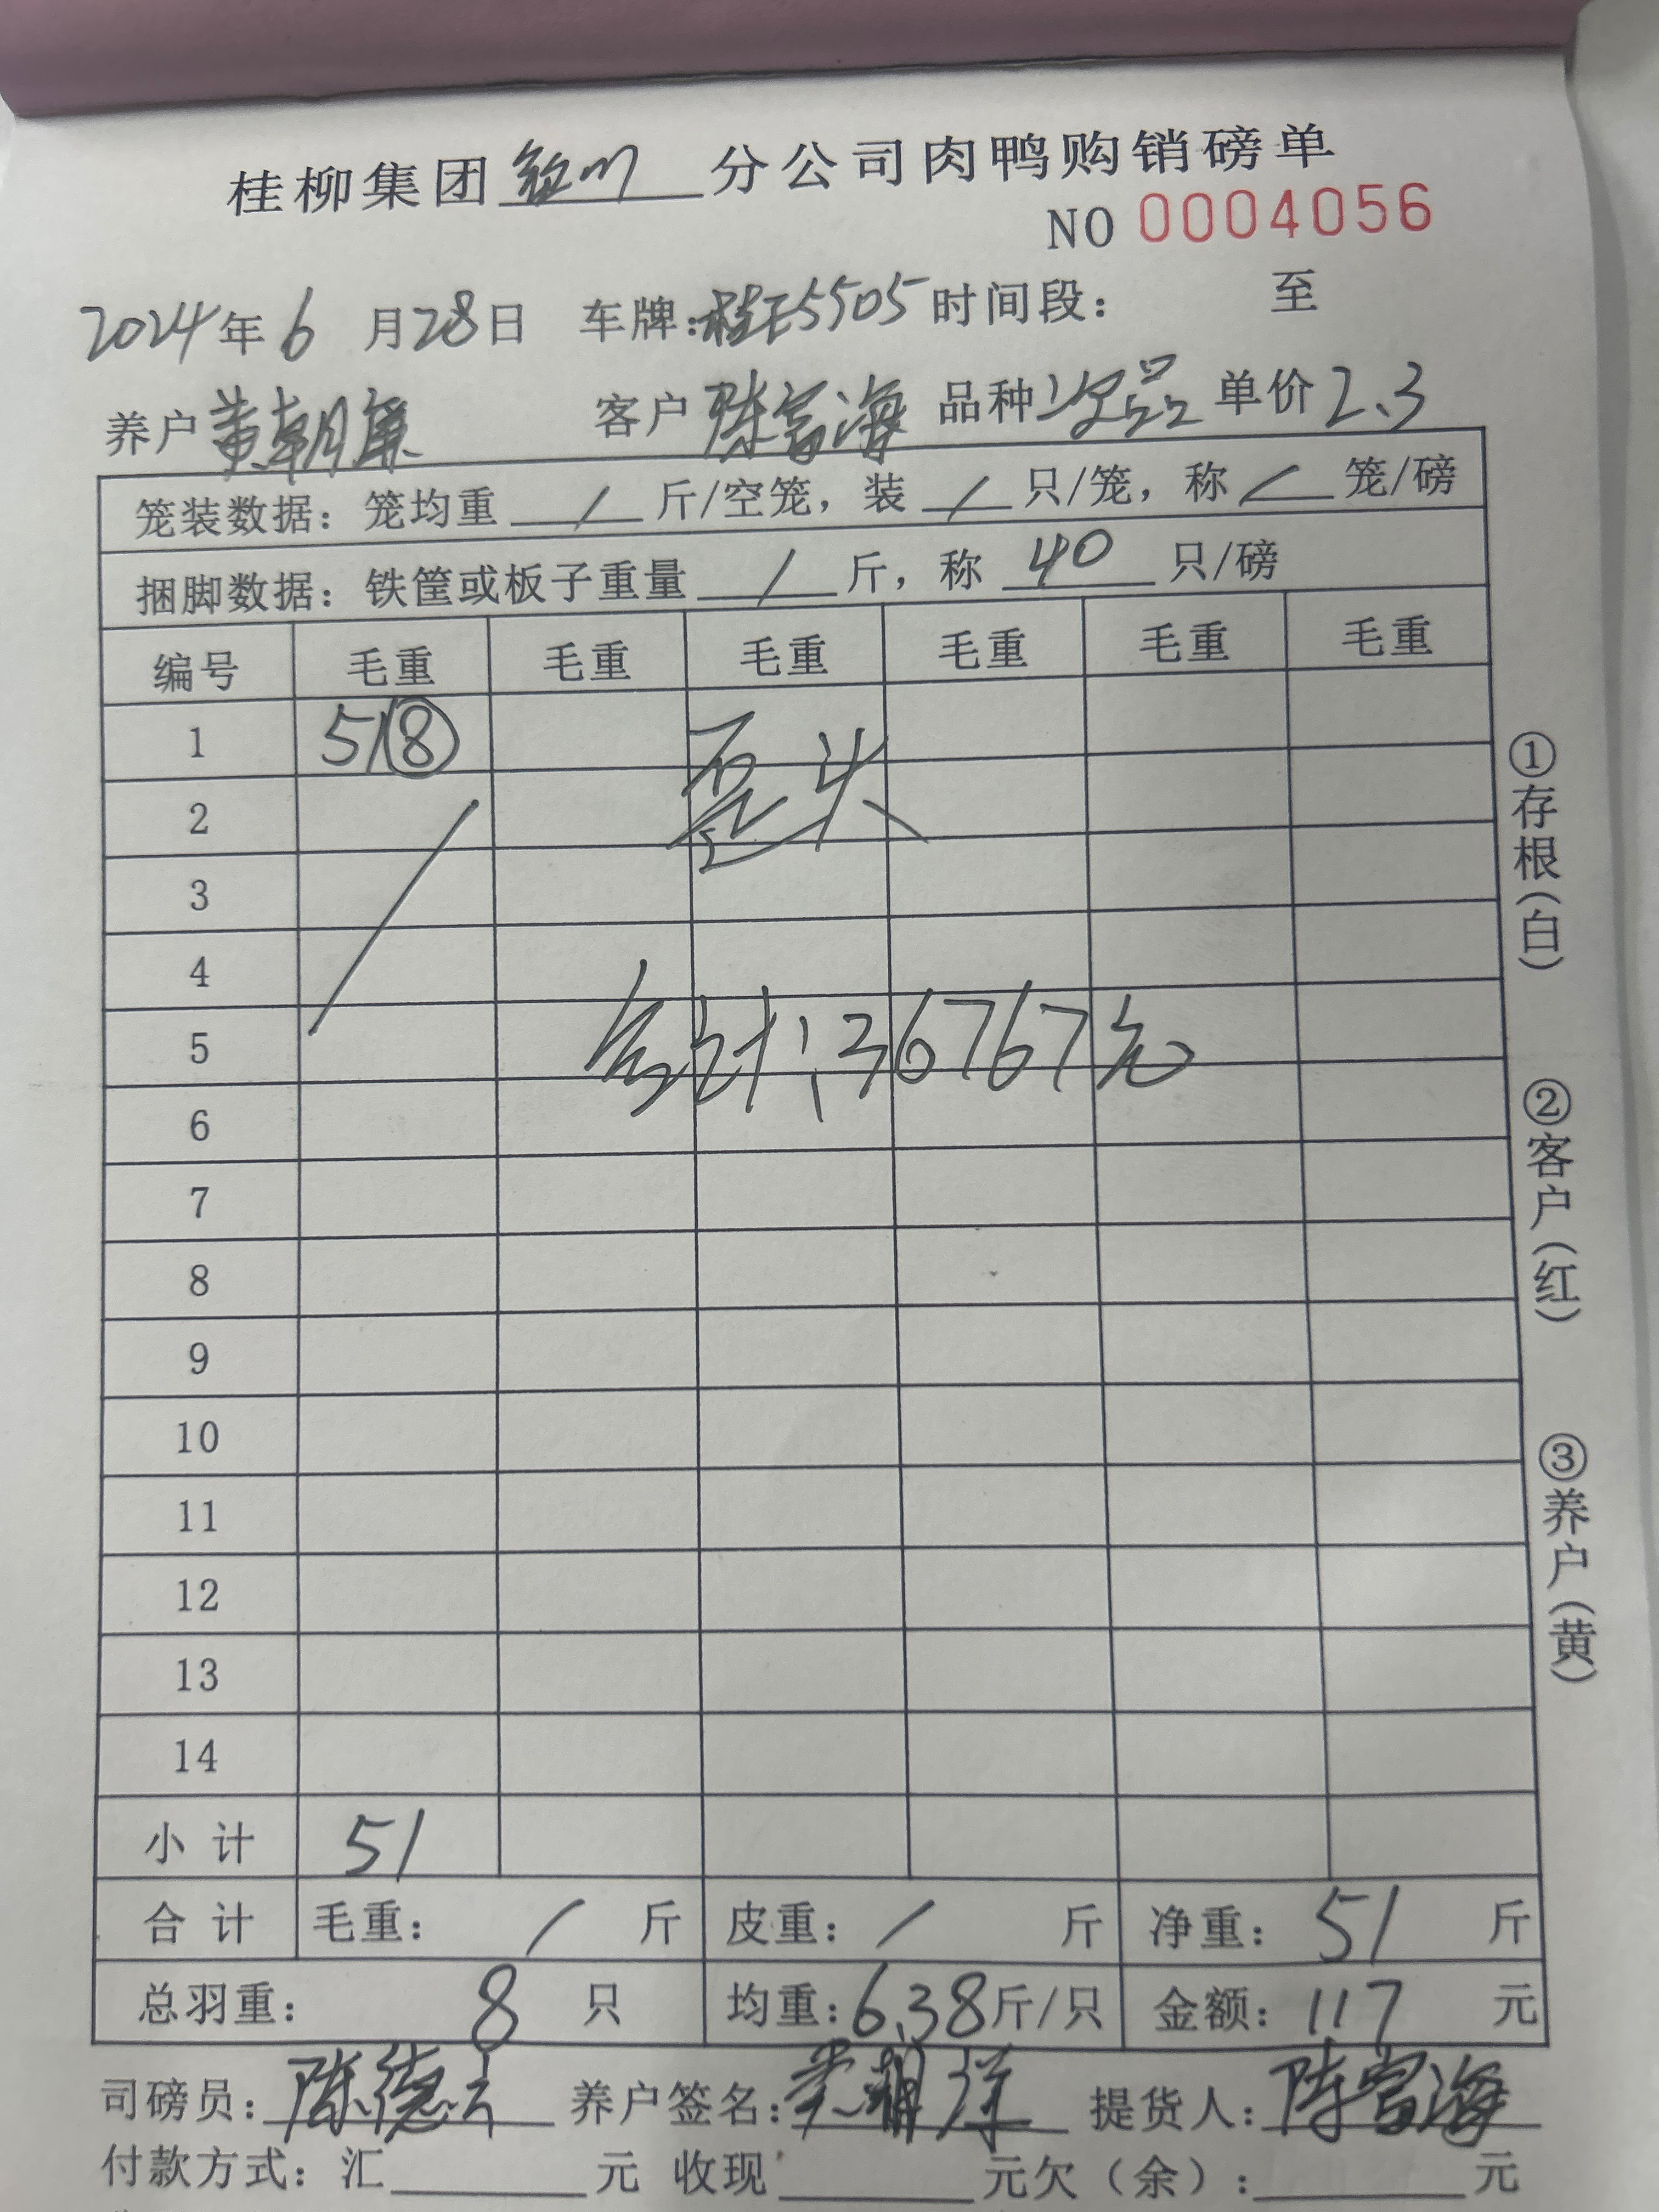 桂柳集团 分公司肉鸭购销磅单
NO 0004056
2024年6月28日 车牌:桂E5505 时间段: 至
养户 黄朝廉 客户 陈富海 品种 次品 单价 2.3
笼装数据: 笼均重 / 斤/空笼, 装 / 只/笼, 称 / 笼/磅
捆脚数据: 铁筐或板子重量 / 斤, 称 40 只/磅
编号 毛重 毛重 毛重 毛重 毛重 毛重
1 51⑧
歪头
2
3
4
5
合计:36767元
6
7
8
9
10
11
12
13
14
小计 51
合计 毛重: / 斤 皮重: / 斤 净重: 51 斤
总羽重: 8 只 均重:6.38斤/只 金额: 117 元
司磅员: 陈德云 养户签名: 提货人: 陈富海
付款方式: 汇 元 收现 元欠(余): 元
①存根(白)
②客户(红)
③养户(黄)